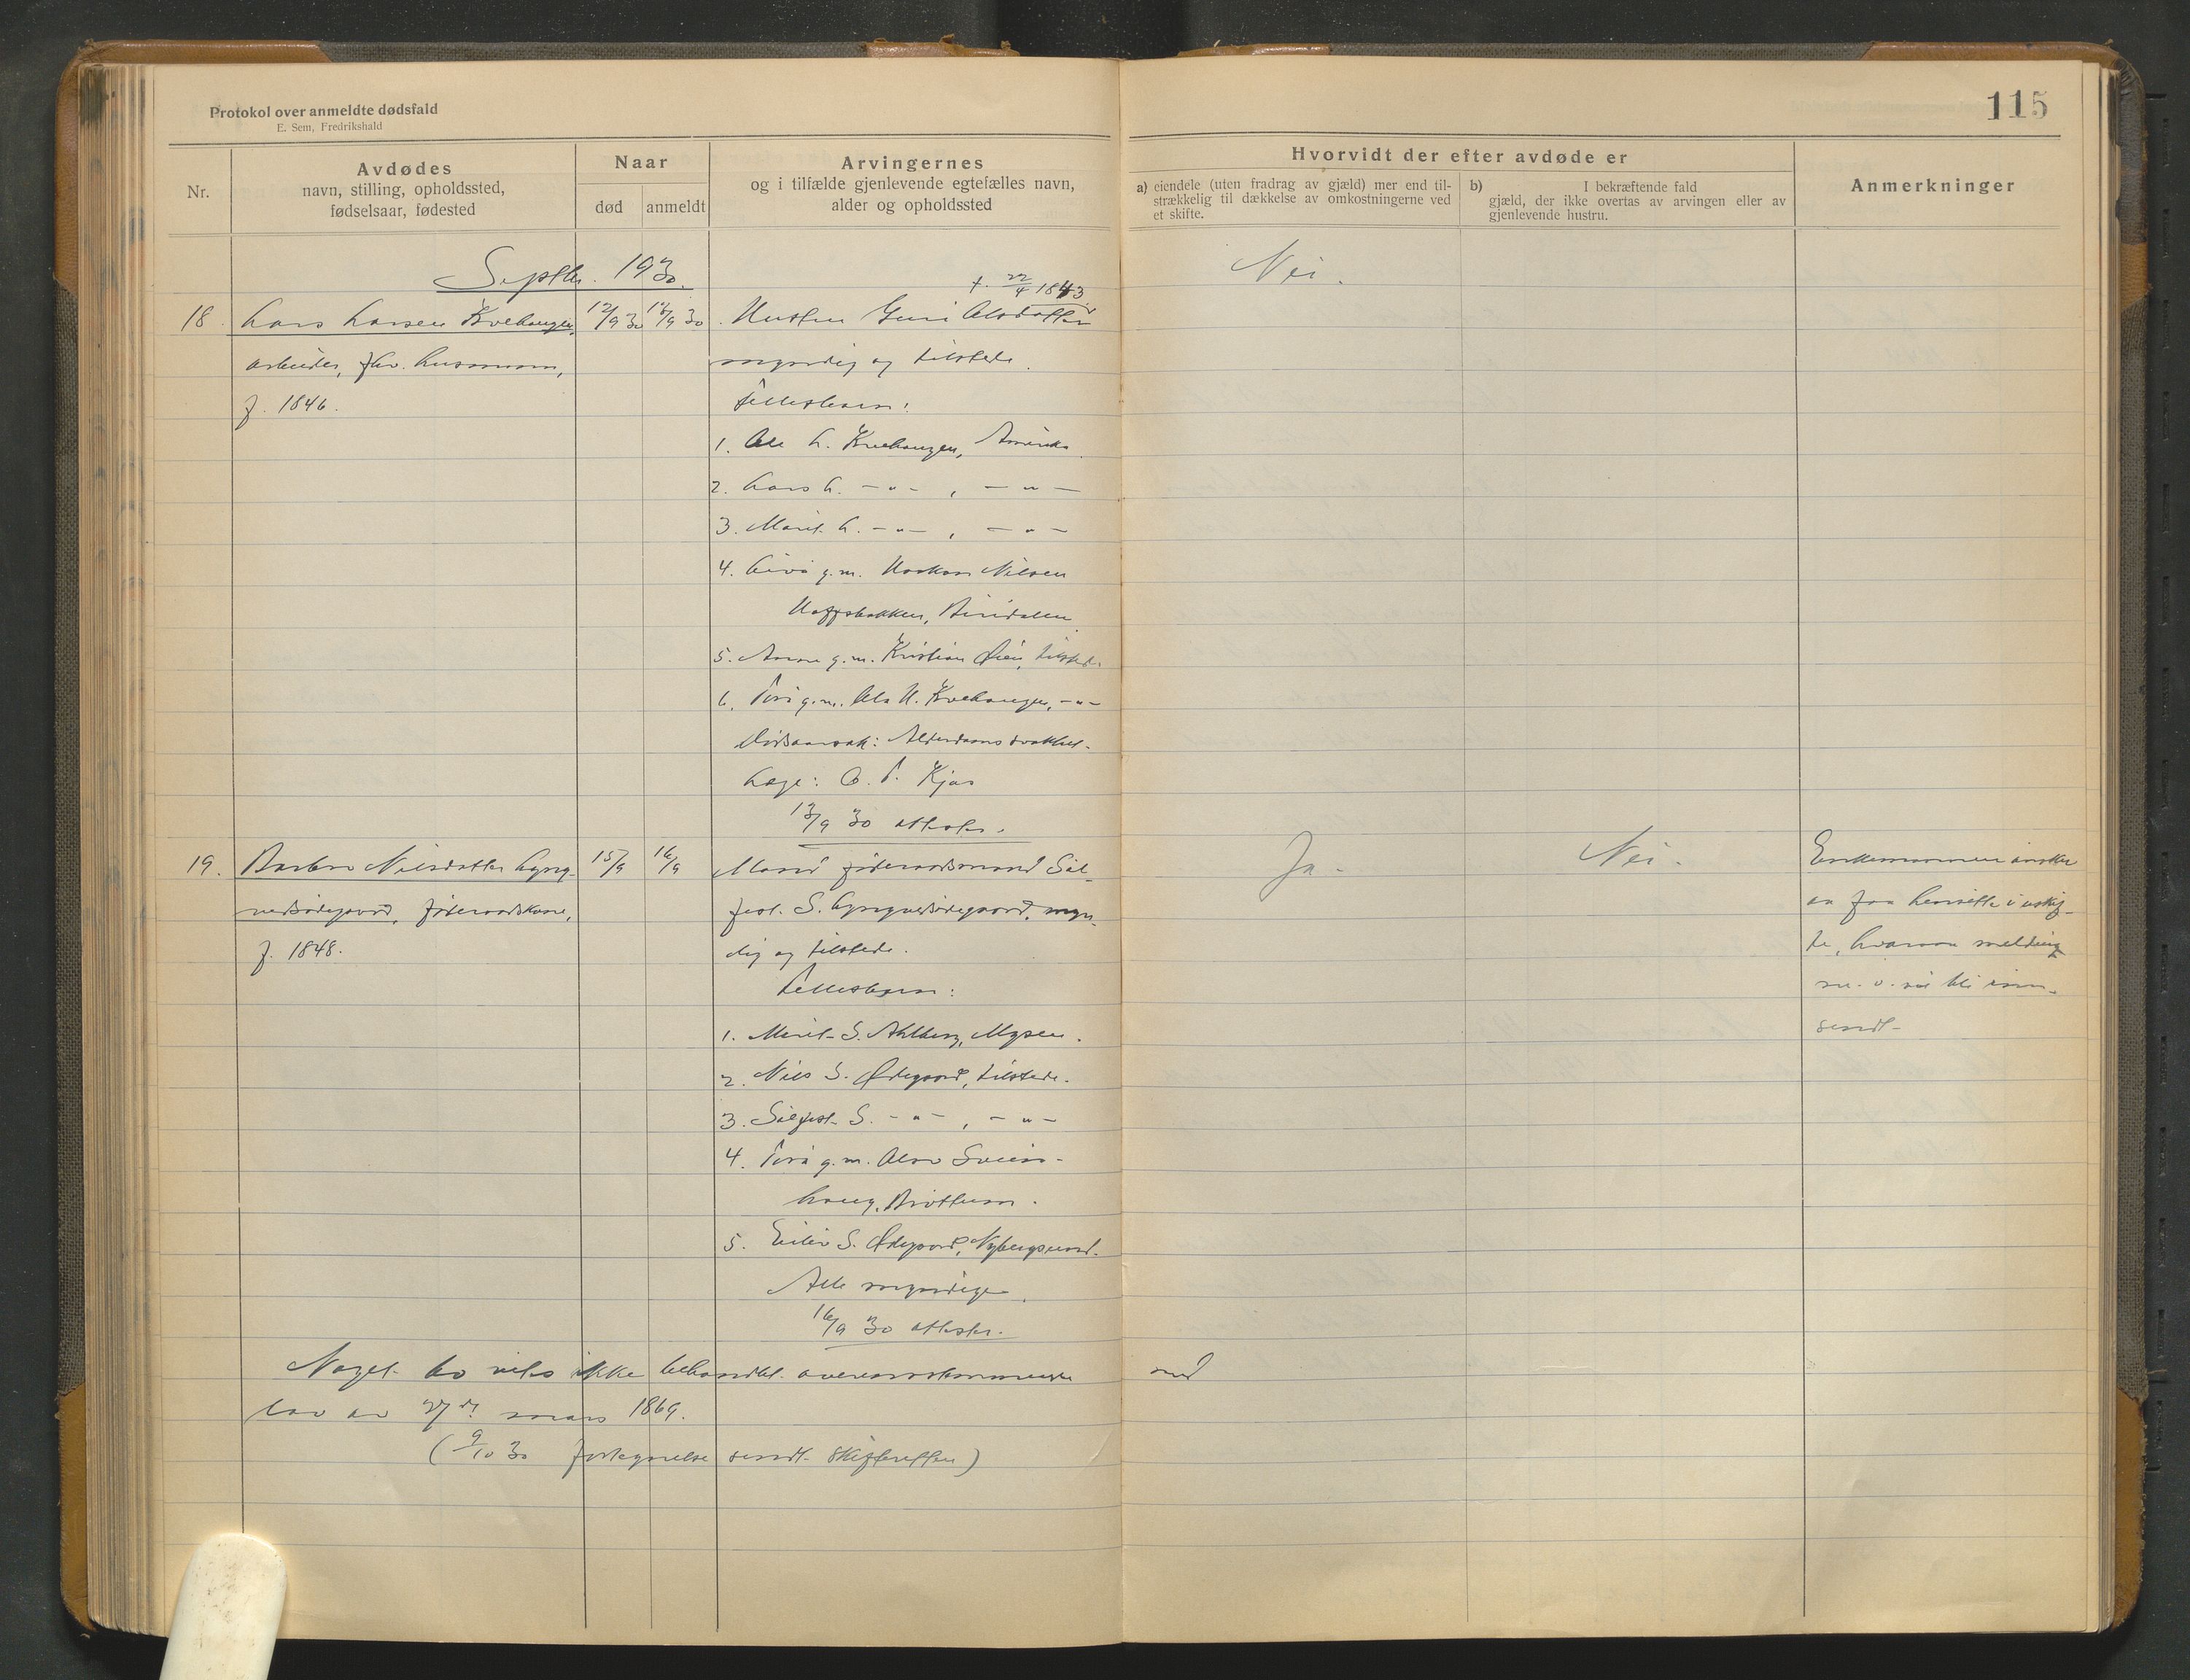 Protokol over anmeldte dødsfald
E. Sem, Fredrikshald
115
Nr.
Avdødes
navn, stilling, opholdssted,
fødselsaar, fødested
Naar
død
anmeldt
Arvingernes
og i tilfælde gjenlevende egtefælles navn,
alder og opholdssted
Hvorvidt der efter avdøde er
a) eiendele (uten fradrag av gjæld) mer end til-
strækkelig til dækkelse av omkostningerne ved
et skifte.
b) I bekræftende fald
gjæld, der ikke overtas av arvingen eller av
gjenlevende hustru.
Anmerkninger
Septbr. 1930.
Nei.
f. 22/4 1843.
18. Lars Larsen Kvehaugen, 12/9 30 12/9 30 Hustru Guri Olsdatter
arbeider, fhv. husmann,
myndig og tilstede.
f. 1846.
Fellesbarn:
1. Ole L. Kvehaugen, Amerika
2. Lars L. -"- , -"-
3. Marit L. -"- , -"-
4. Livi g.m. Haakon Nilsen
Hoffsbakken, Biridalen
5. Anne g.m. Kristian Øien, tilstede
6. Siri g.m. Ola H. Kvehaugen, -"-
Dødsaarsak: Alderdomssvakhet.
Læge: O. T. Kjos
13/9 30 attester.
19. Barbro Nilsdatter Lyng- 15/9 16/9 Mand føderaadsmand Sil-
Ja.
Nei.
Enkemannen ønsker
nesødegaard, føderaadskone,
fest. S. Lyngnesødegaard, myn-
aa faa hensitte i uskif-
f. 1848.
dig og tilstede.
te, hvorom melding
Fellesbarn:
m. v. vil bli inn-
sendt.
1. Marit S. Ahlberg, Mysen.
2. Nils S. Ødegaard, tilstede.
3. Silfest S. -"- , -"-
4. Siri g.m. Olav Svein-
haug, Brøttum.
5. Eiliv S. Ødegaard, Nybergsund.
Alle myndige.
16/9 30 attester.
Noget bo vites ikke behandlet overensstemmende med
lov av 27de mars 1869.
(9/10 30 fortegnelse sendt skifteretten)